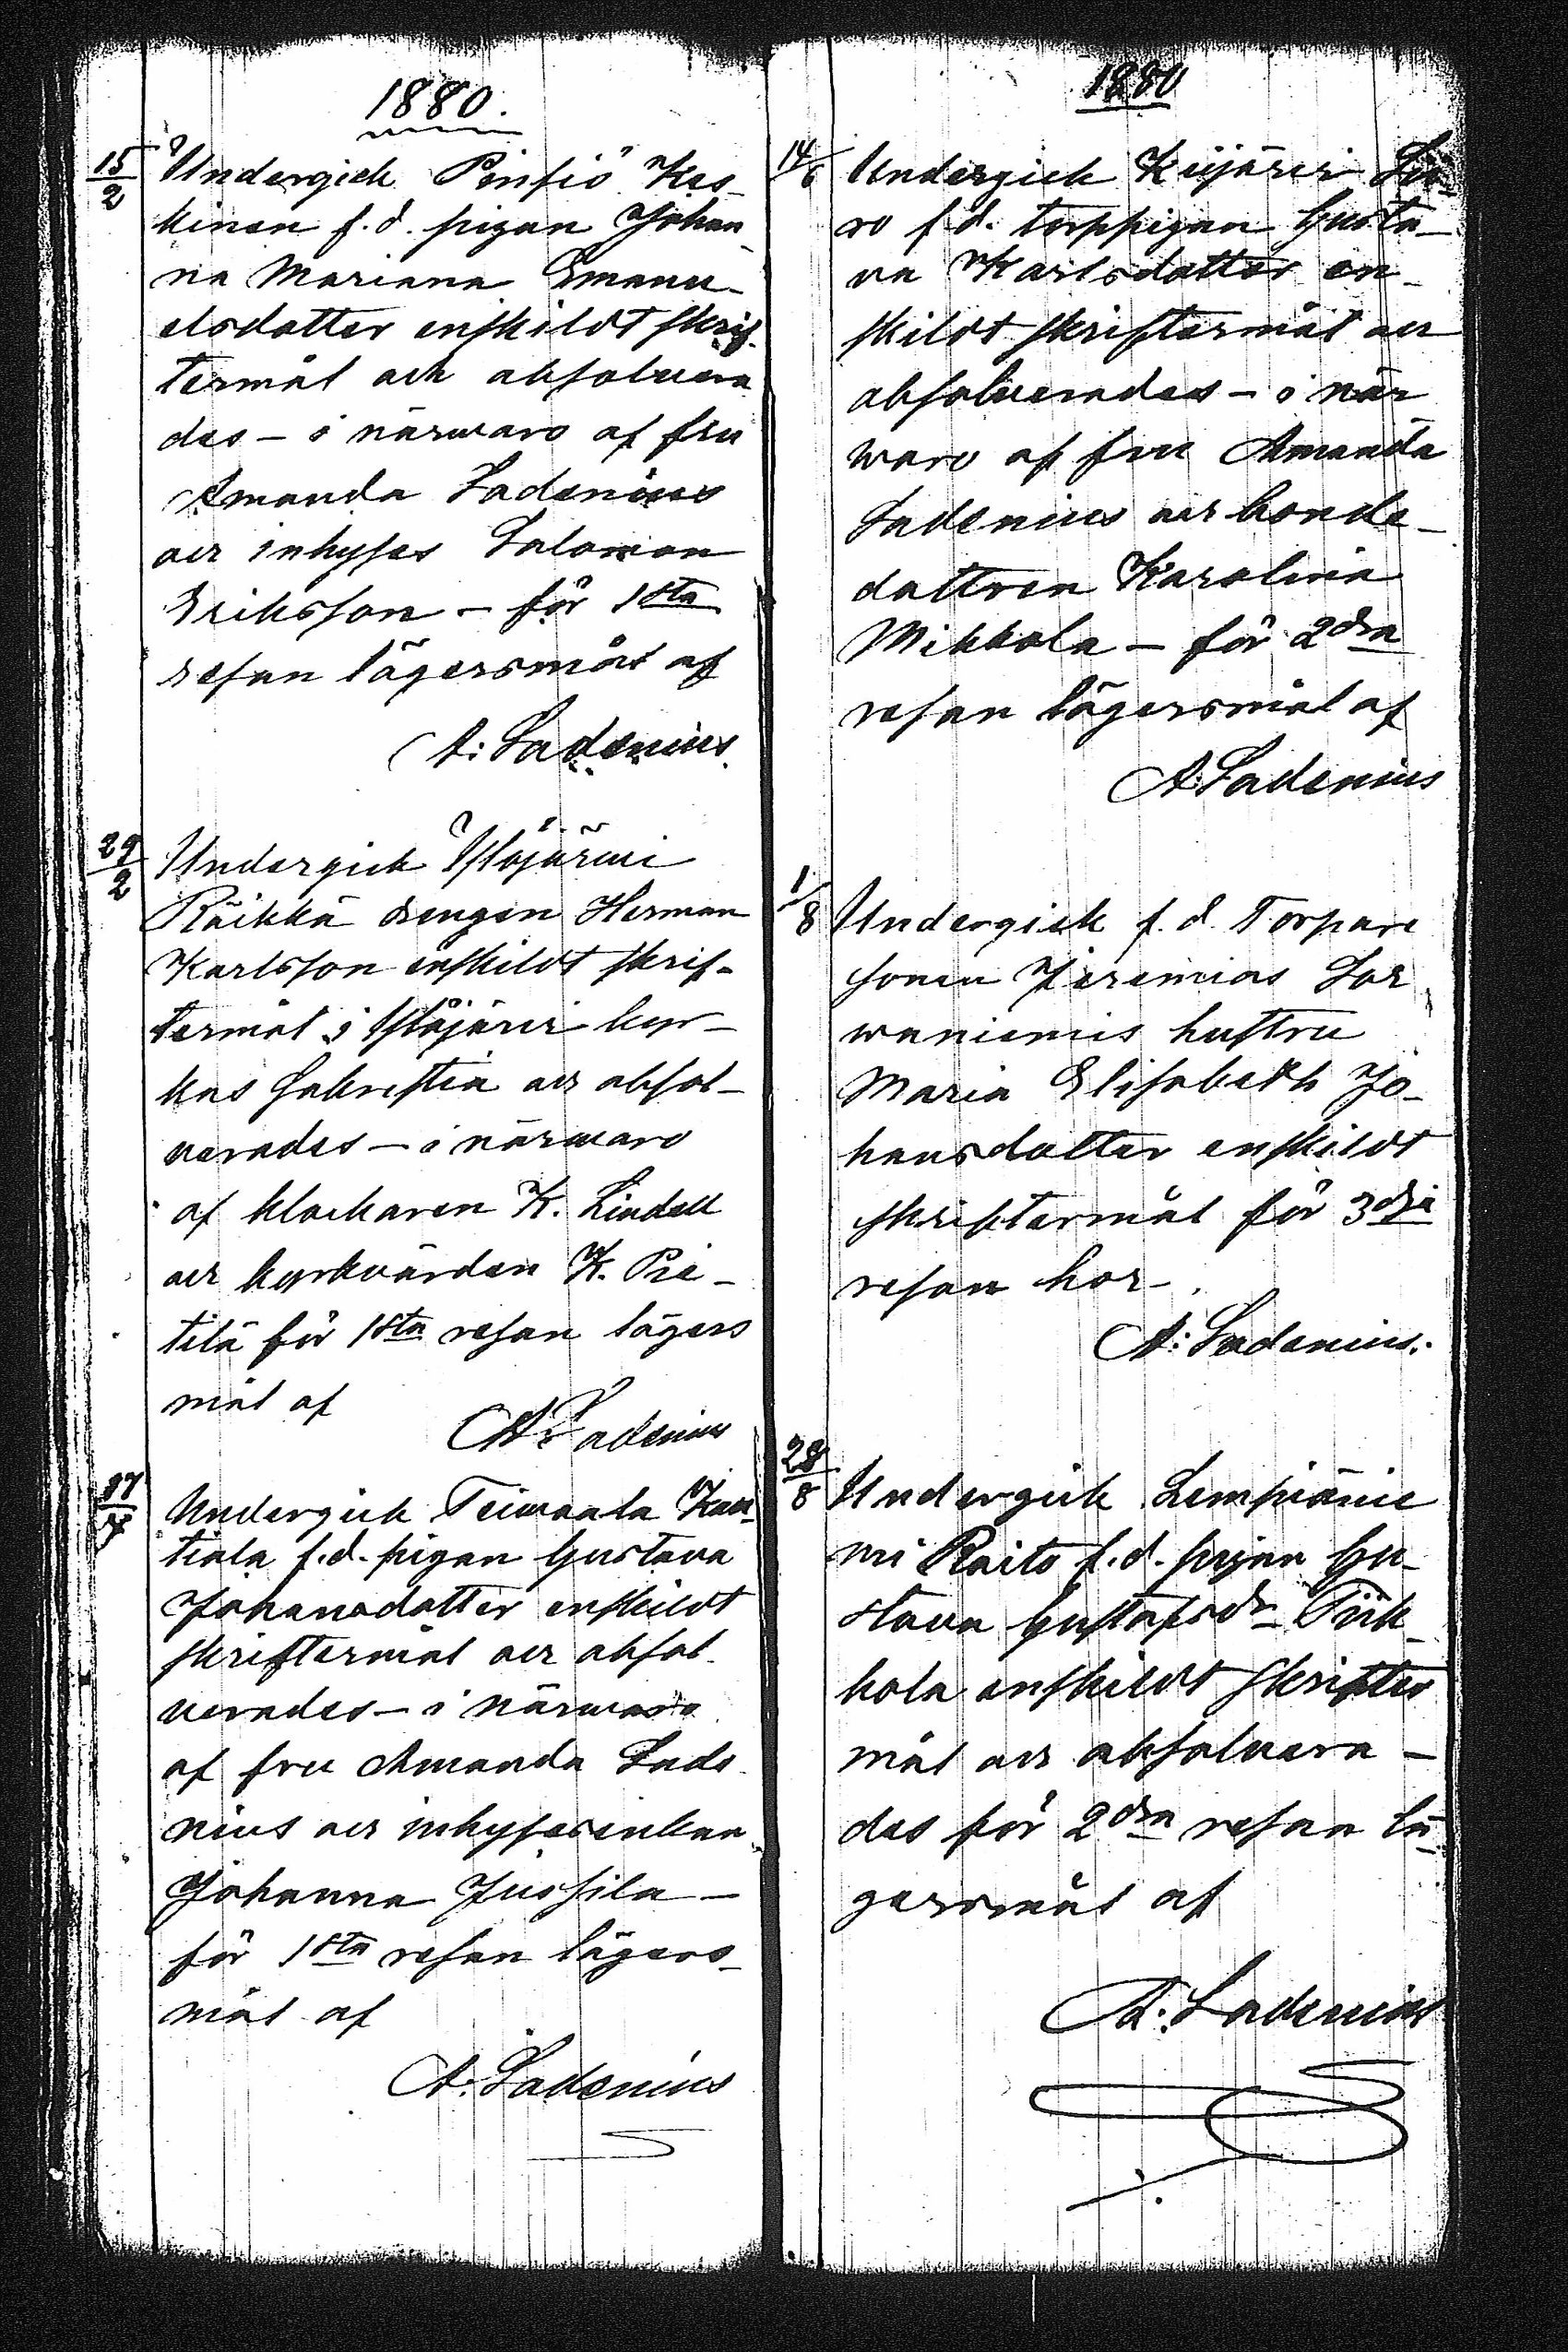 1880.
15/2 Undergick Pinsiö Kes-
kinen f.d. pigan Johan
na Mariana Emanu-
elsdotter enskildt skrif-
termål och absolvera
des - i närwaro af fru
Amanda Ladenius
och inhyses Salomon
Eriksson - för 1sta
resan lägersmål af
A: Ladenius.
29/2 Undergick Ylöjärwi
Räikkä drengen Herman
Karlsson enskildt skrif-
termål i Ylöjärwi kyr-
kas sakristia och absol-
verades - i närwaro
af klockaren K. Lindell
och kyrkvärden K. Pie-
tilä för 1sta resan lägers
mål af
A: Ladenius
Undergick Teiwaala Kau-
tiala f.d. pigan Gustava
Johansdotter enskildt
skriftermål och absol-
verades - i närwaro
af fru Amanda Lade
nius och inhysesenkan
Johanna Jussila -
för 1sta resan lägers-
mål af
A. Ladenius
1880
14/6 Undergick Kijärvi
ro f.d. torppigan Gusta-
va Karlsdotter en-
skildt skriftermål och
absolverades - i när
waro af fru Amanda
Ladenius och bonde-
dottren Karolina
Mikkola - för 2dra
resan lägersmål af
A: Ladenius
1/8 Undergick f.d. Torpare
sonen Jeremias Sor
waniemis hustru
Maria Elisabeth Jo-
hansdotter enskildt
skriftermål för 3dje
resan hor-.
A: Ladenius.
Undergick Lempiänie
mi Raito f.d. pigan Gu-
stava Gustafsdr
kola enskildt skrifter
mål och absolvera -
des för 2dra resan lä-
gersmål af
A: Ladenius